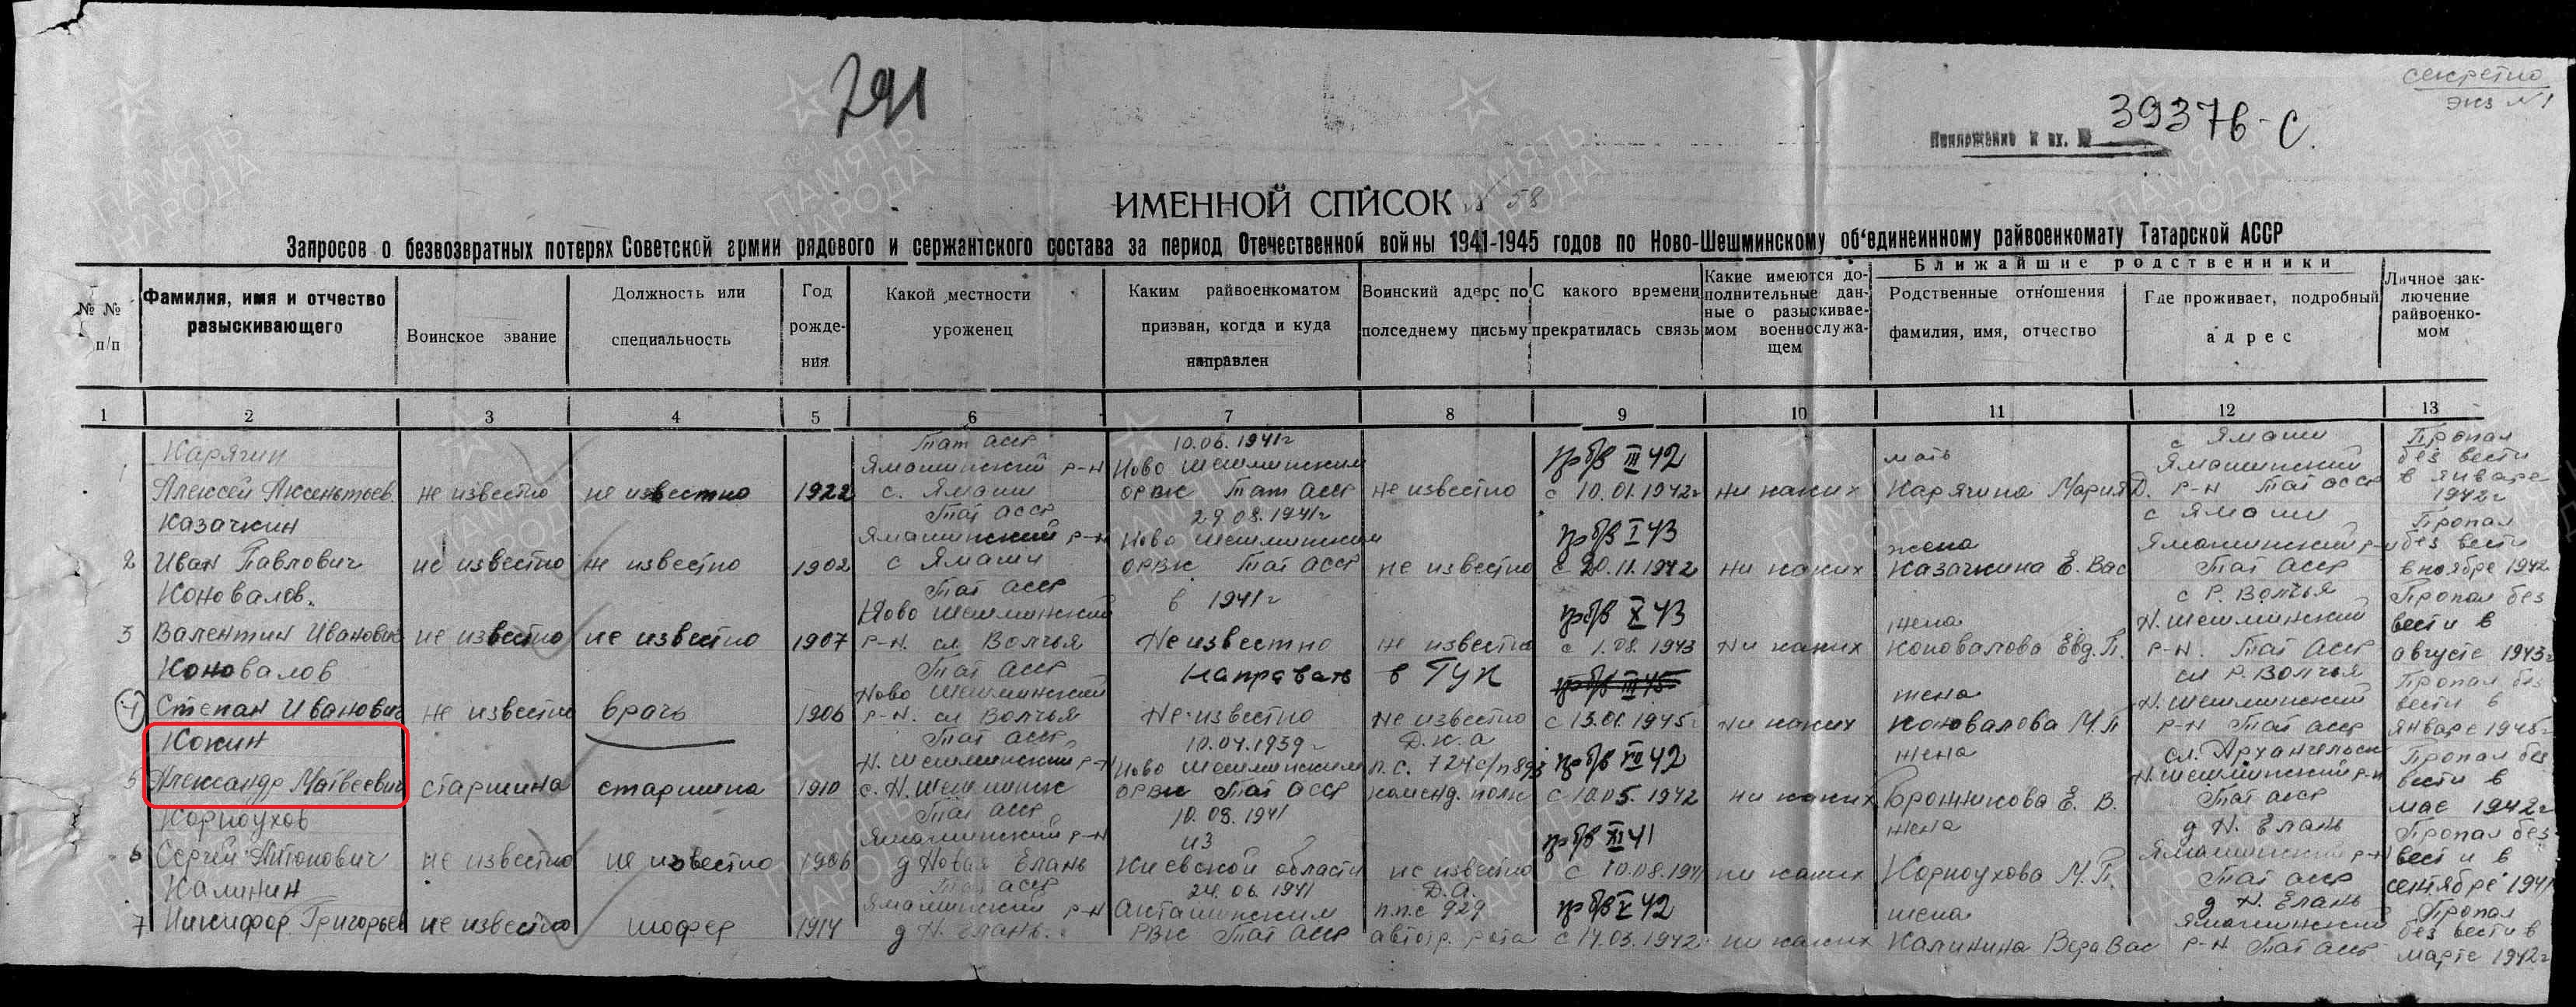 секретно
экз №1
291
39376-с.
Приложение к вх. №
ИМЕННОЙ СПИСОК № 58
Запросов о безвозвратных потерях Советской армии рядового и сержантского состава за период Отечественной войны 1941-1945 годов по Ново-Шешминскому об'единеинному райвоенкомату Татарской АССР
№ № п/п
Фамилия, имя и отчество разыскивающего
Воинское звание
Должность или специальность
Год рожде- ния
Какой местности уроженец
Каким райвоенкоматом призван, когда и куда направлен
Воинский адерс по полседнему письму
С какого времени прекратилась связь
Какие имеются до- полнительные дан- ные о разыскивае- мом военнослужа- щем
Ближайшие родственники
Родственные отношения фамилия, имя, отчество
Где проживает, подробный адрес
Личное зак- лючение райвоенко- мом
1 2 3 4 5 6 7 8 9 10 11 12 13
1 Карягин Алексей Аксентьев. не известно не известно 1922 Тат асср Ямашинский р-н с. Ямаши 10.06.1941г Ново Шешминским ОРВК Тат асср не известно пр б/в III 42 с 10.01.1942г ни каких мать Карягина Мария Д. с Ямаши Ямашинский р-н Тат асср Пропал без вести в январе 1942г
2 Казачкин Иван Павлович не известно не известно 1902 Тат асср Ямашинский р-н с Ямаши 29.08.1941г Ново Шешминским ОРВК Тат асср не известно пр б/в I 43 с 20.11.1942 ни каких жена Казачкина Е. Вас с Ямаши Ямашинский р-н Тат асср Пропал без вести в ноябре 1942
3 Коновалов. Валентин Иванович не известно не известно 1907 Тат асср Ново Шешминский р-н. сл Волчья в 1941г Неизвестно не известно пр б/в X 43 с 1.08.1943 ни каких жена Коновалова Евд. П. с Р. Волчья Н. Шешминский р-н. Тат асср Пропал без вести в августе 1943г
4 Коновалов Степан Иванович не известно врач 1906 Тат асср Ново Шешминский р-н. сл Волчья Направить в ГУК Неизвестно не известно пр б/в III 45 с 13.01.1945г ни каких жена Коновалова М. П сл Р. Волчья Н. Шешминский р-н Тат асср Пропал без вести январе 1945г
5 Кокин Александр Матвеевич старшина старшина 1910 Тат асср Н. Шешминский р-н с. Н. Шешминск 10.04.1939г Ново Шешминским ОРВК Тат асср Д.К.а п.с. 724 с/п коменд. полк пр б/в VII 42 с 10.05.1942 ни каких жена Бронникова Е. В. сл. Архангельск Н. Шешминский р-н Тат асср Пропал без вести в мае 1942г
6 Корноухов Сергей Антонович не известно не известно 1906 Тат асср Ямашинский р-н д Новая Елань 10.08.1941 из Киевской области не известно пр б/в XI 41 с 10.08.1941 ни каких жена Корноухова М. П. д Н. Елань Ямашинский р-н Тат асср Пропал без вести в сентябре 1941
7 Калинин Никифор Григорьев не известно шофер 1914 Тат асср Ямашинский р-н д Н. Елань. 24.06.1941 Акташинским РВК Тат асср Д.а. п.п.с 929 автотр. рота пр б/в V 42 с 14.03.1942г ни каких жена Калинина Вера Вас д Н. Елань Ямашинский р-н Тат асср Пропал без вести в марте 1942г
ПАМЯТЬ НАРОДА